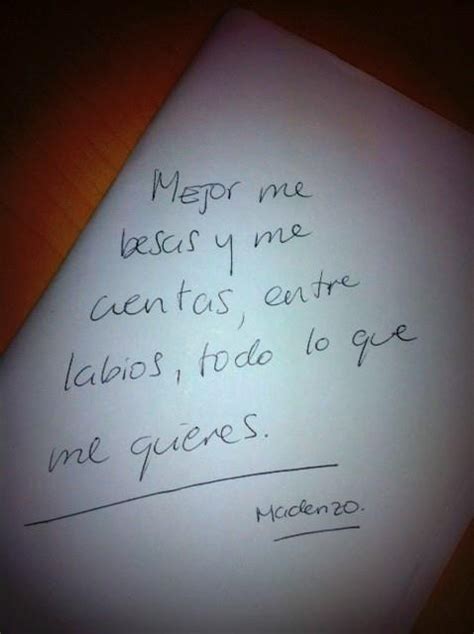 Mejor me
besas y me
cuentas, entre
labios, todo lo que
me quieres.
Madenzo.